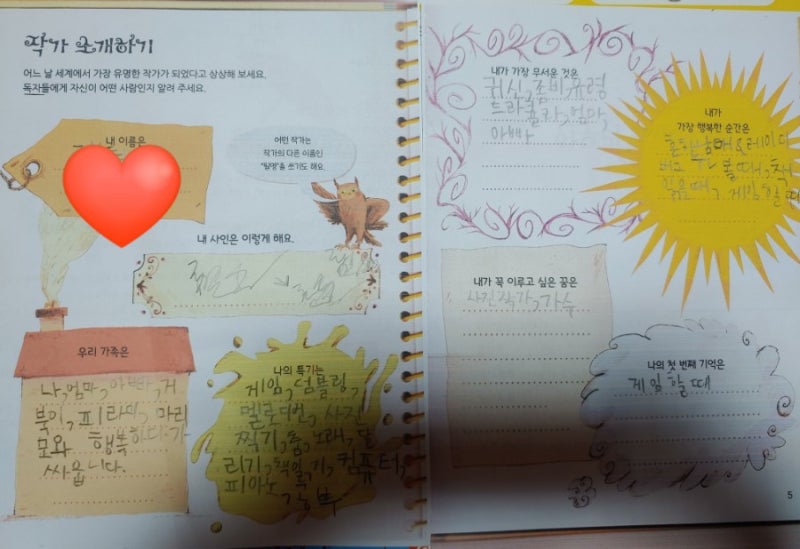 작가 소개하기
어느 날 세계에서 가장 유명한 작가가 되었다고 상상해 보세요.
독자들에게 자신이 어떤 사람인지 알려 주세요.
내 이름은
어떤 작가는
작가의 다른 이름인
"필명"을 쓰기도 해요.
내 사인은 이렇게 해요.
우리 가족은
나,엄마,아빠,거
북이,피라미,마리
모와 행복하다가
싸웁니다.
나의 특기는
게임,덤블링,
멜로디언, 사진
찍기,춤,노래,달
리기,책읽기,컴퓨터,
피아노,공부
내가 가장 무서운 것은
귀신,좀비,유령
드라큘라,엄마,
아빠
내가
가장 행복한 순간은
볼때,책
읽을때, 게임할때
내가 꼭 이루고 싶은 꿈은
사진작가,가수
나의 첫 번째 기억은
게임할때
5